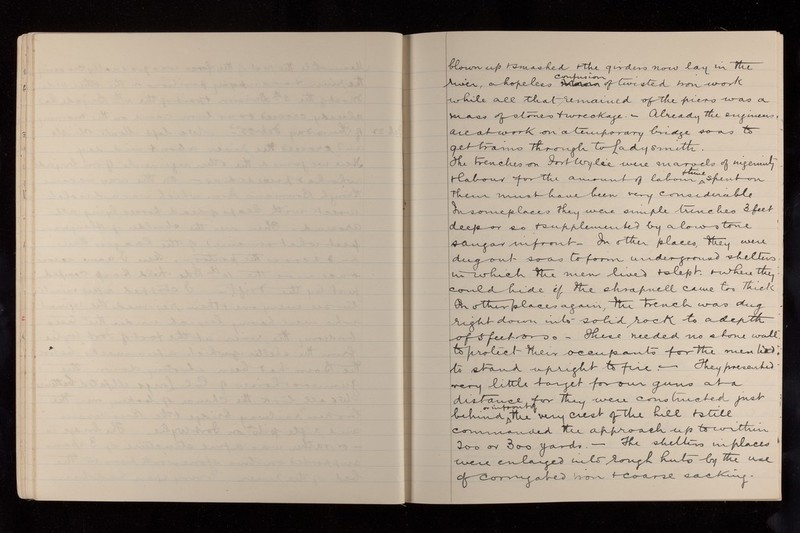 blown up & smashed & the girders now lay in the
river, a hopeless confusion of twisted iron work
while all that remained of the piers was a
mass of stones & wreckage. - Already the engineers
are at work on a temporary bridge so as to
get trains through to Ladysmith.
The trenches on Fort Wylie were marvels of ingenuity
& labour for the amount of labour & time spent on
them must have been very considerable
In some places they were simple trenches 3 feet
deep or so & supplemented by a low stone
sangar in front - In other places, they were
dug out so as to form underground shelters
in which the men lived & slept & where they
could hide if the shrapnell came too thick
In other places again, the trench was dug
right down into solid rock to a depth
of 5 feet or so - These needed no stone wall
to protect their occupants for the men had
to stand upright to fire - They presented
very little target for our guns at a
distance, for they were constructed just
behind, or in front of the very crest of the hill & still
commanded the approach up to within
200 or 300 yards. - The shelters in places
were enlarged into rough huts by the use
of corrugated iron & coarse sacking.